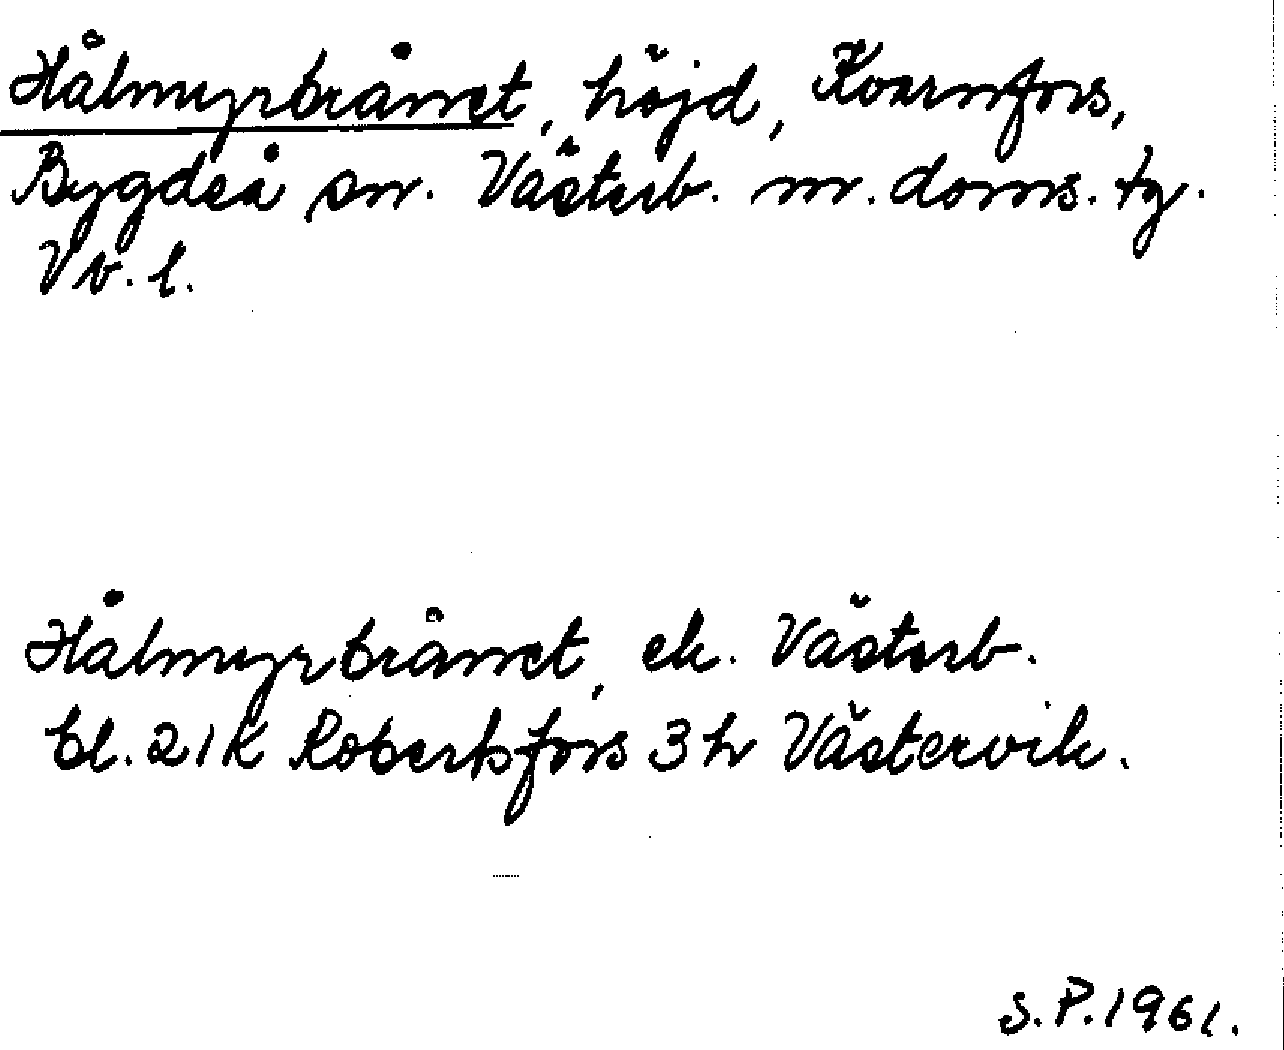 Hålmyrbrånet, höjd, Kvarnfors,
Bygdeå sn. Västerb. n. doms. tg.
Vb. l.
Hålmyrbrånet, ek. Västerb.
bl. 21K Robertsfors 3h Västervik.
S.P. 1961.